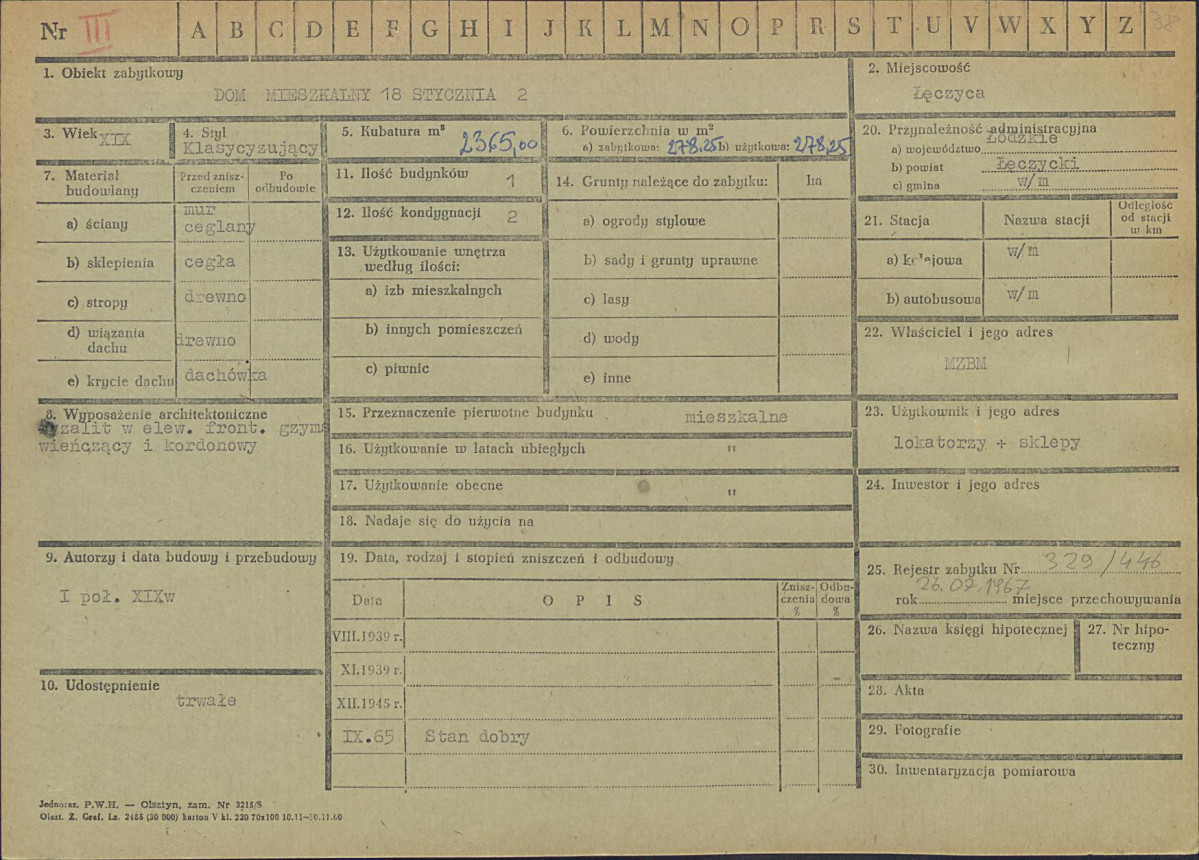 Nr III A B C D E F G H I J K L M N O P R S T U V W X Y Z 38
1. Obiekt zabytkowy
DOM MIESZKALNY 18 STYCZNIA 2
2. Miejscowość
Łęczyca
3. Wiek XIX
4. Styl
Klasycyzujący
5. Kubatura m³
2365,00
6. Powierzchnia w m²
a) zabytkowa: 278,25 b) użytkowa: 278,25
20. Przynależność administracyjna
a) województwo Łódzkie
b) powiat Łęczycki
c) gmina w/m
7. Materiał
budowlany
Przed znisz-
czeniem
Po
odbudowie
a) ściany
mur
ceglany
b) sklepienia cegła
c) stropy drewno
d) wiązania
dachu
drewno
e) krycie dachu dachówka
11. Ilość budynków 1
12. Ilość kondygnacji 2
13. Użytkowanie wnętrza
według ilości:
a) izb mieszkalnych
b) innych pomieszczeń
c) piwnic
14. Grunty należące do zabytku: ha
a) ogrody stylowe
b) sady i grunty uprawne
c) lasy
d) wody
e) inne
21. Stacja Nazwa stacji
Odległość
od stacji
w km
a) kolejowa w/m
b) autobusowa w/m
22. Właściciel i jego adres
MZBM
8. Wyposażenie architektoniczne
w elew. front. gzyms
wieńczący i kordonowy
15. Przeznaczenie pierwotne budynku mieszkalne
16. Użytkowanie w latach ubiegłych "
17. Użytkowanie obecne "
18. Nadaje się do użycia na
23. Użytkownik i jego adres
lokatorzy + sklepy
24. Inwestor i jego adres
9. Autorzy i data budowy i przebudowy
I poł. XIXw
10. Udostępnienie
trwałe
19. Data, rodzaj i stopień zniszczeń i odbudowy
Data
O P I S
Znisz-
czenia
%
Odbu-
dowa
%
VIII.1939 r.
XI.1939 r.
XII.1945 r.
IX.65 Stan dobry
25. Rejestr zabytku Nr 329/446
26.07.1967
rok miejsce przechowywania
26. Nazwa księgi hipotecznej
27. Nr hipo-
teczny
28. Akta
29. Fotografie
30. Inwentaryzacja pomiarowa
Jednoraz. P.W.H. — Olsztyn, zam. Nr 3215/S
Olszt. Z. Graf. Lz. 2485 (30 000) karton V kl. 220 70x100 10.11—30.11.60